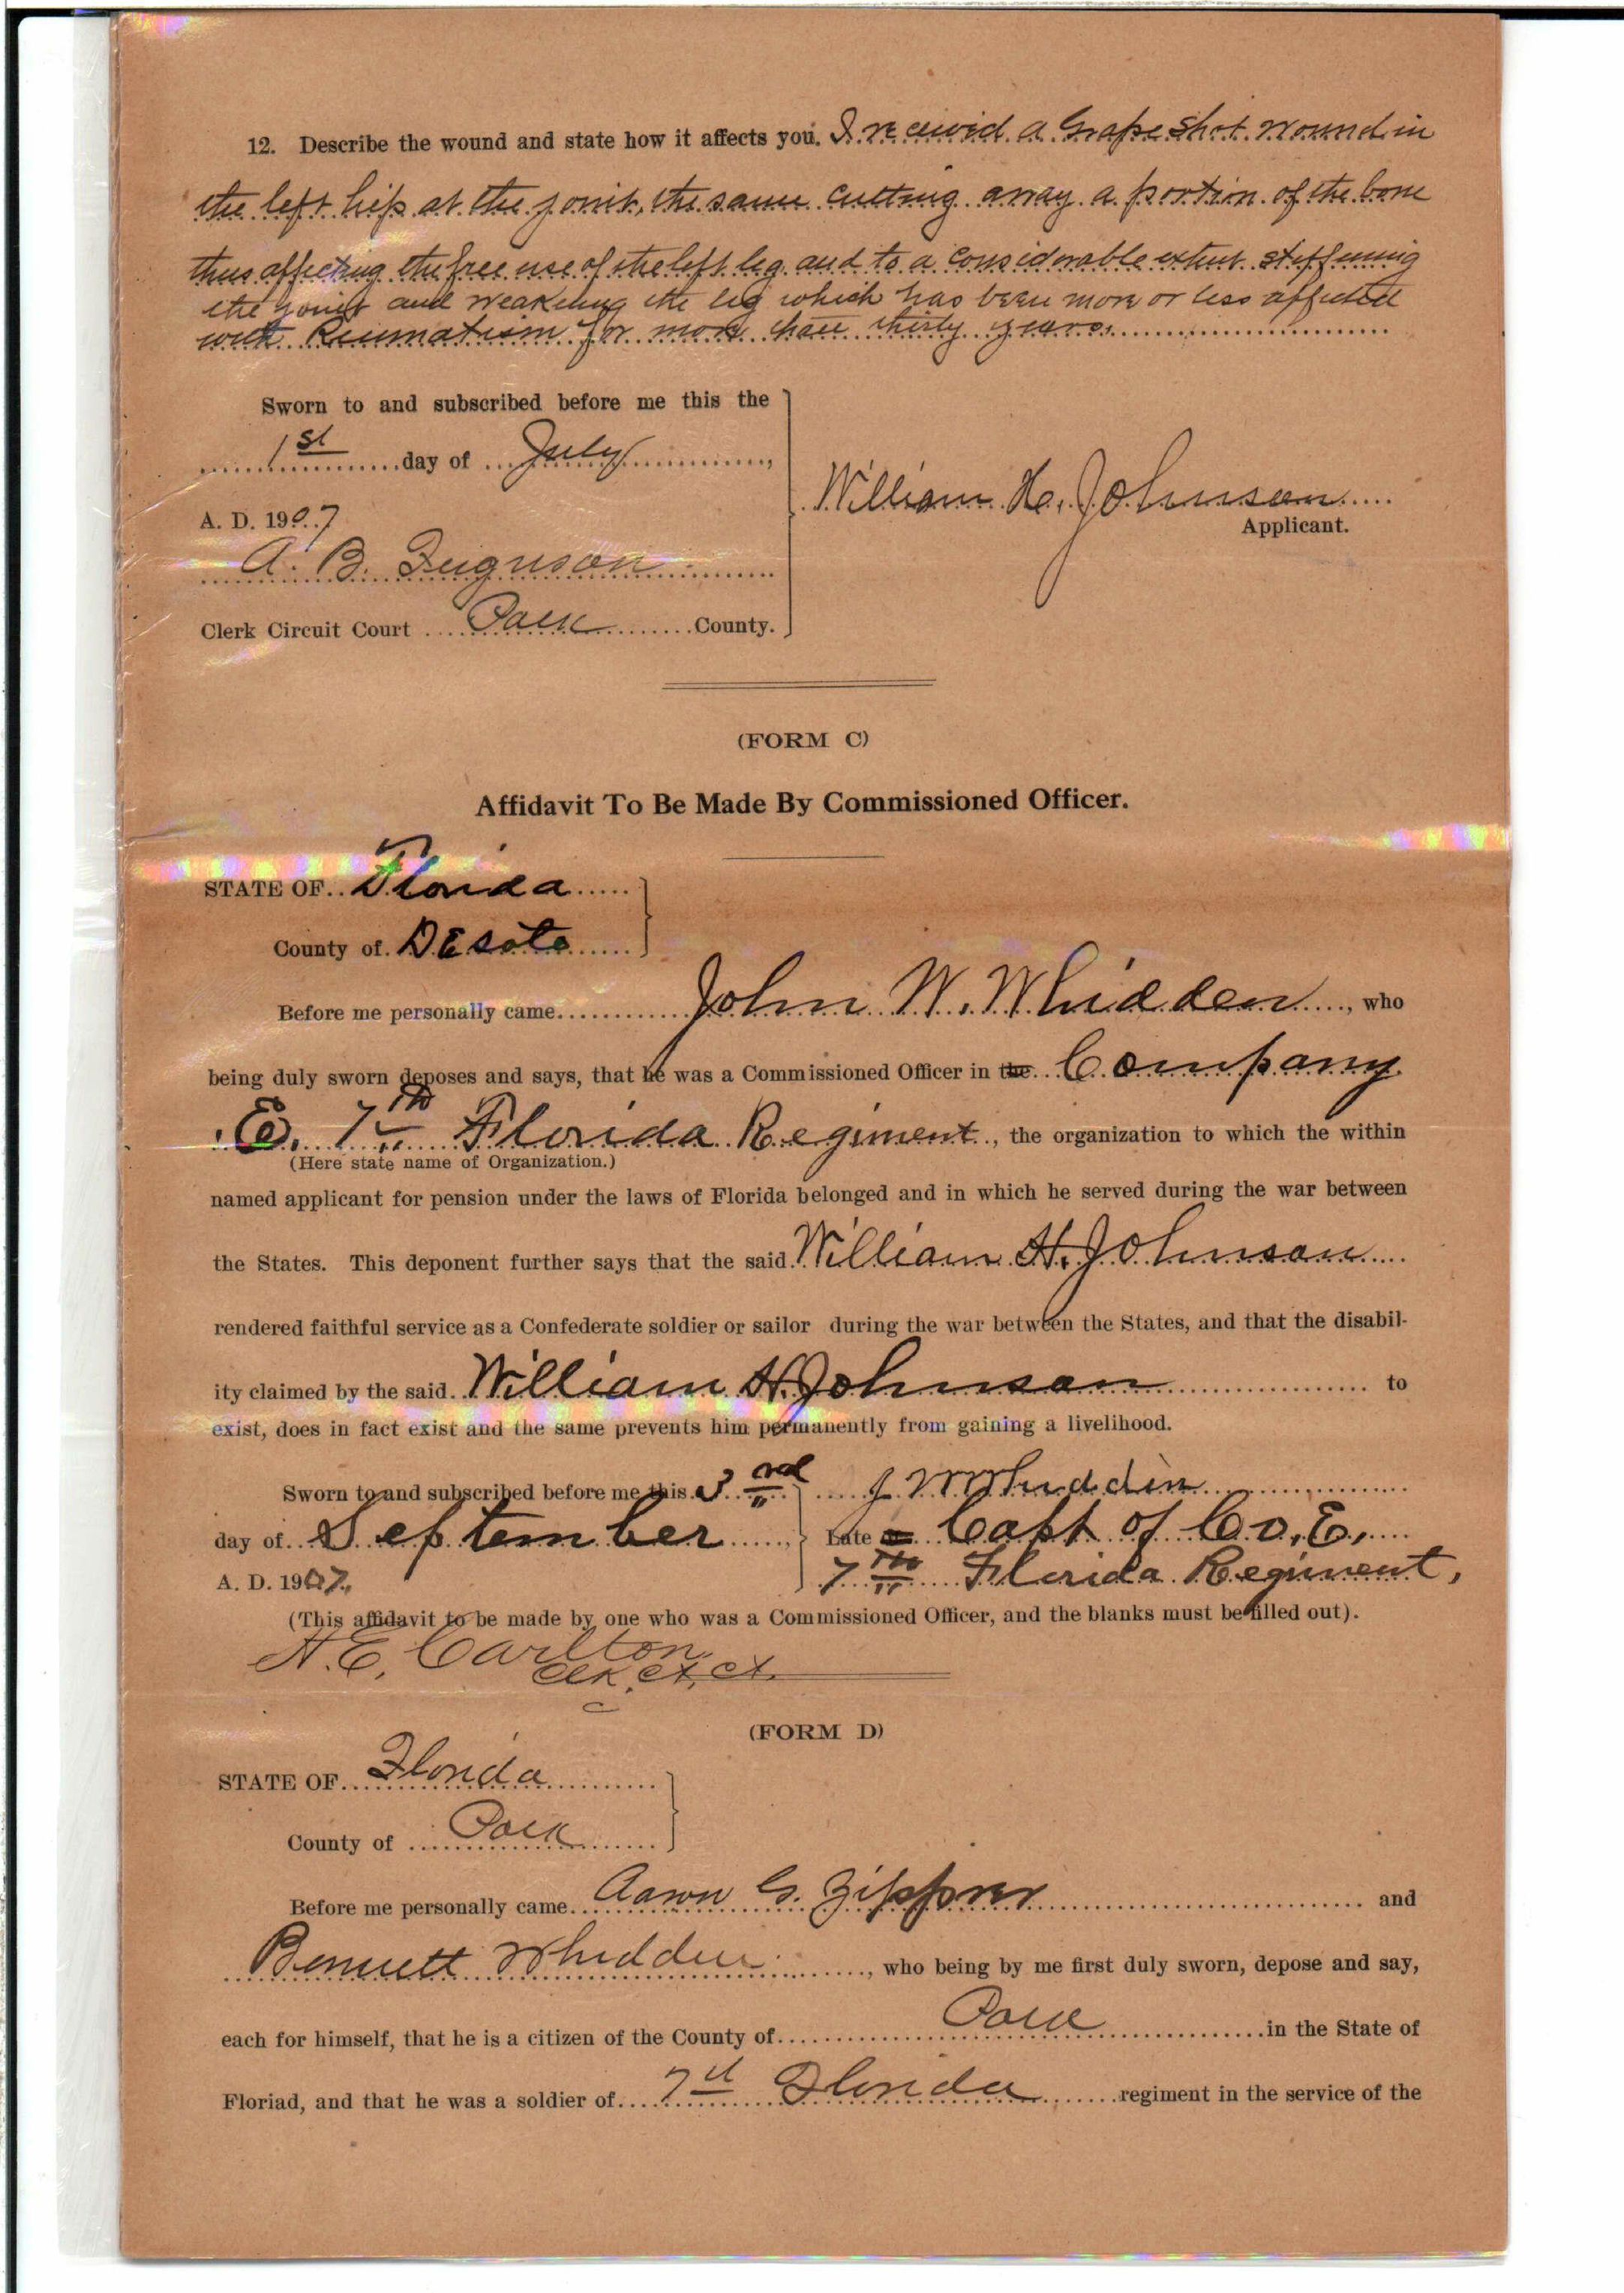 12. Describe the wound and state how it affects you. I receivid a Grape Shot wound in
the left hip at the joint, the same cutting away a portion of the bone
thus affecting the free use of the left leg and to a considerable extent stiffening
the joint and weakening the leg which has been more or less affected
with Reumatism for more than thirty years.
Sworn to and subscribed before me this the
1st day of July,
A. D. 1907
William H. Johnson
Applicant.
A. B. Ferguson
Clerk Circuit Court Polk County.
(FORM C)
Affidavit To Be Made By Commissioned Officer.
STATE OF Florida
County of Desoto
Before me personally came John W. Whidden, who
being duly sworn deposes and says, that he was a Commissioned Officer in the Company
E. 7th Florida Regiment, the organization to which the within
(Here state name of Organization.)
named applicant for pension under the laws of Florida belonged and in which he served during the war between
the States. This deponent further says that the said William H. Johnson
rendered faithful service as a Confederate soldier or sailor during the war between the States, and that the disabil-
ity claimed by the said William H. Johnson to
exist, does in fact exist and the same prevents him permanently from gaining a livelihood.
Sworn to and subscribed before me this 3rd J W Whidden
day of September, Late Capt of Co. E,
A. D. 1907. 7th Florida Regiment,
(This affidavit to be made by one who was a Commissioned Officer, and the blanks must be filled out).
A. E. Carlton
Clk. Ct. Ct.
(FORM D)
STATE OF Florida
County of Polk
Before me personally came Aaron G. Zipprer and
Bennett Whidden, who being by me first duly sworn, depose and say,
each for himself, that he is a citizen of the County of Polk in the State of
Floriad, and that he was a soldier of 7th Florida regiment in the service of the